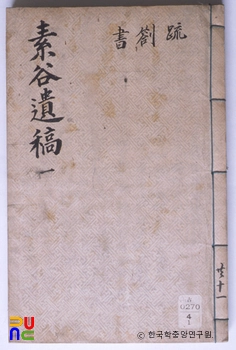 素谷遺稿 一
疏劄書
共十一
0270
4
1
ⓒ 한국학중앙연구원